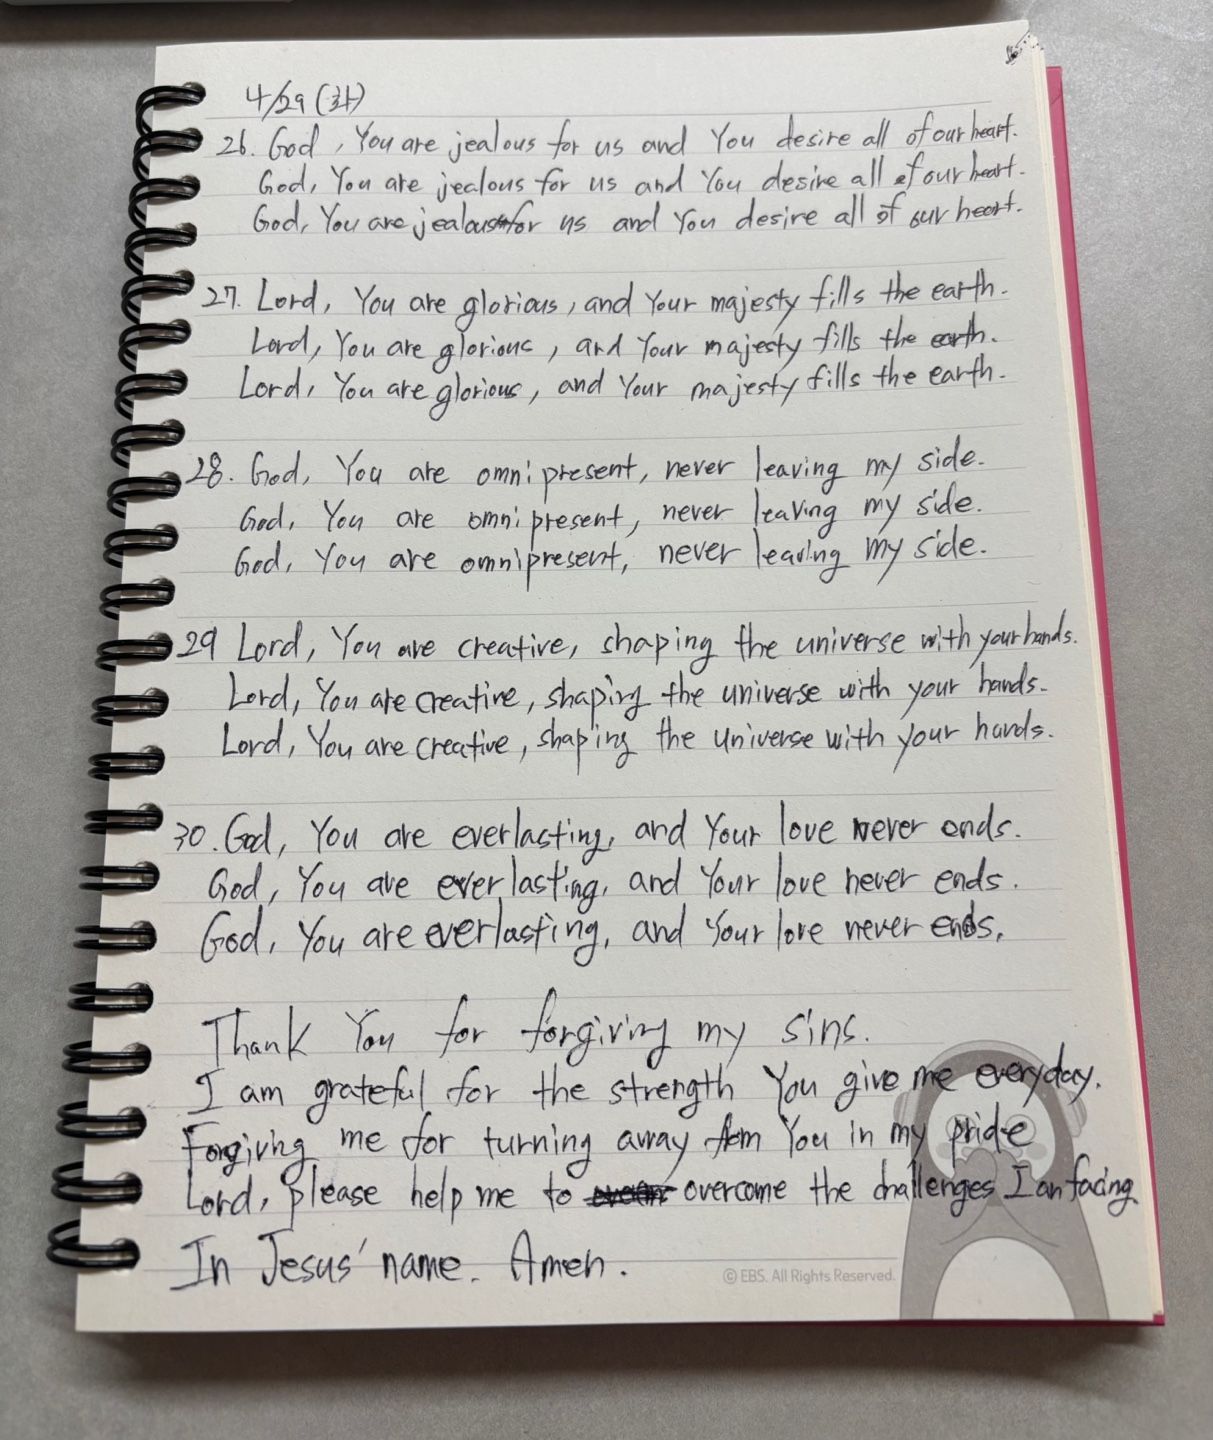 4/29 (화)
26. God, You are jealous for us and You desire all of our heart.
God, You are jealous for us and You desire all of our heart.
God, You are jealous for us and You desire all of our heart.
27. Lord, You are glorious, and Your majesty fills the earth.
Lord, You are glorious, and Your majesty fills the earth.
Lord, You are glorious, and Your majesty fills the earth.
28. God, You are omnipresent, never leaving my side.
God, You are omnipresent, never leaving my side.
God, You are omnipresent, never leaving my side.
29 Lord, You are creative, shaping the universe with your hands.
Lord, You are creative, shaping the universe with your hands.
Lord, You are creative, shaping the universe with your hands.
30. God, You are everlasting, and Your love never ends.
God, You are everlasting, and Your love never ends.
God, You are everlasting, and Your love never ends.
Thank You for forgiving my sins.
I am grateful for the strength You give me everyday.
Forgiving me for turning away from You in my pride
Lord, please help me to overcome the challenges I am facing
In Jesus' name. Amen.
© EBS. All Rights Reserved.